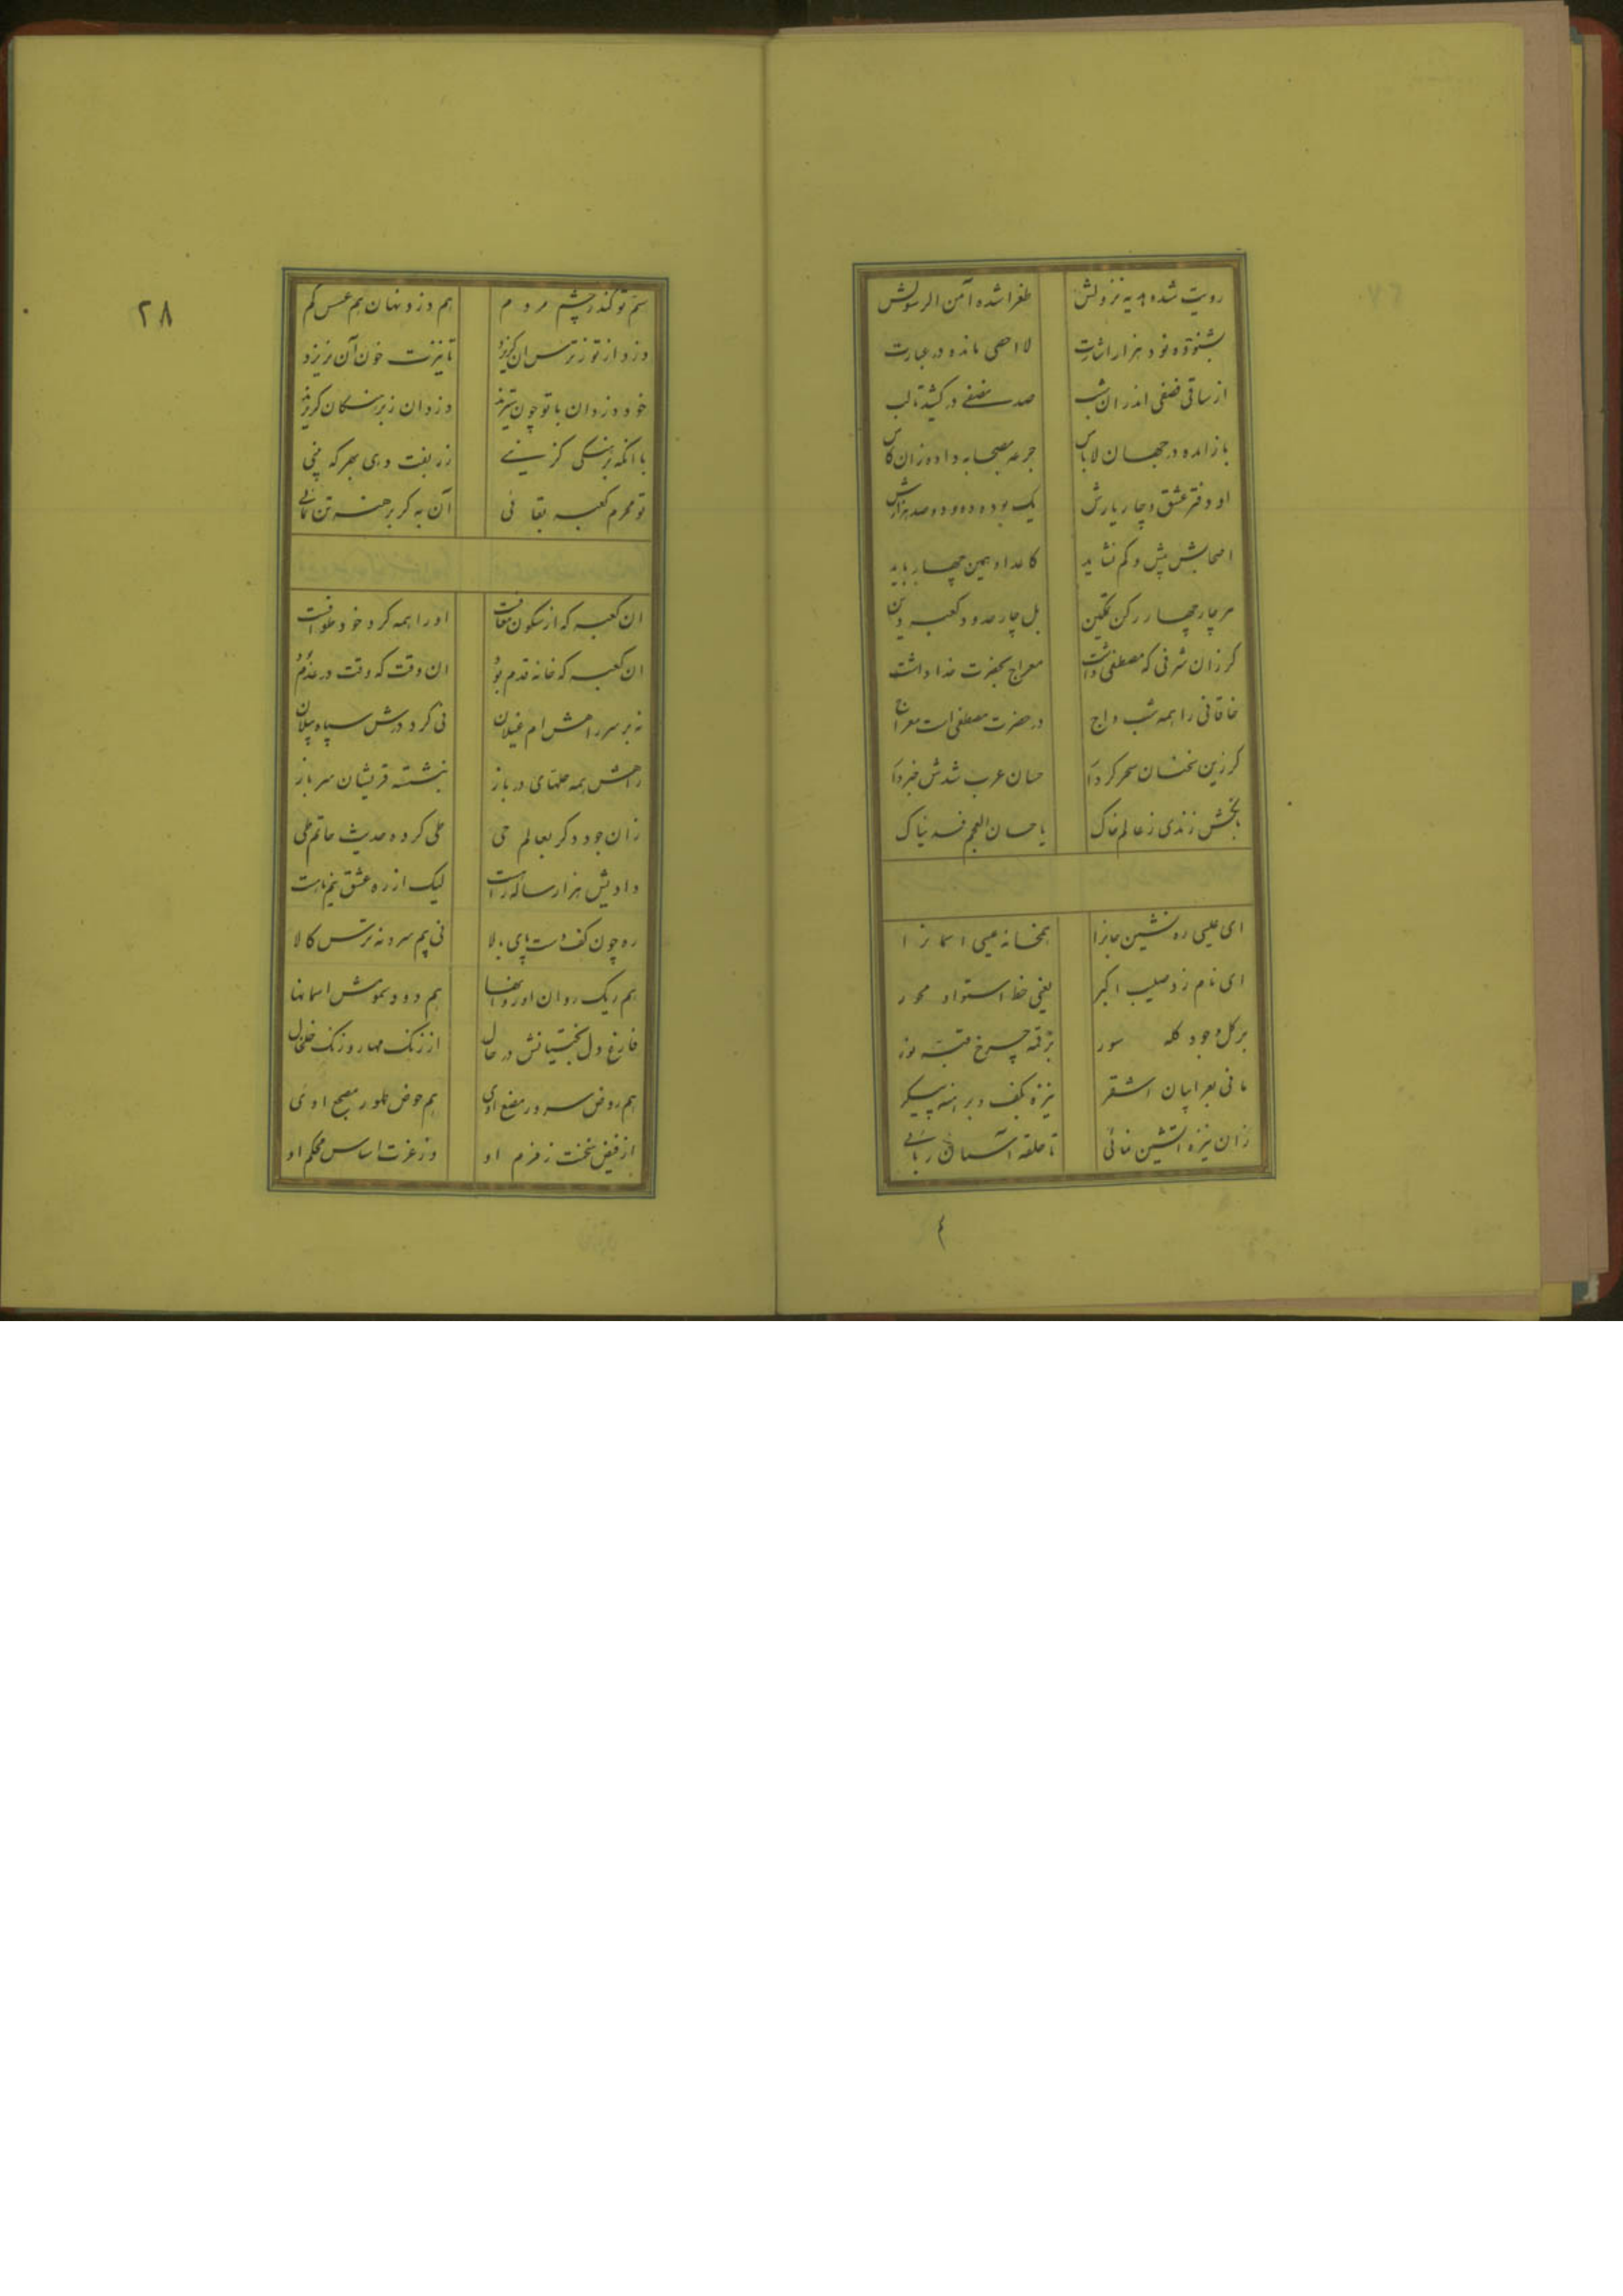 رویت شده آیه نزولش طغرا شده آمن الرسولش
بشنوده نود هزار اشارت لا احصی مانده در عبارت
از ساقی فضفی اندران شب صد در کشیده تا لب
باز آمده در جهان لاباس جرعه بصحابه داده زان کاس
او دفتر عشق و چار یارش یک بوده و ده و دو صد هزارش
اصحابش بیش و کم نشاید کاعداد همین چهار باید
هر چار چهار رکن تمکین بل چار حدود کعبه دین
گر زان شرفی که مصطفی داشت معراج بحضرت خدا داشت
خاقانی را همه شب داج در حضرت مصطفی است معراج
کر زین سخنان سحر کردار حسان عرب شدش خبردار
بخش زندی ز عالم خاک یا حسان العجم فدیناک
ای عیسی ره نشین همخانه عیسی آسمانرا
ای نام زد صلیب اکبر یعنی خط استوا و محور
بر کل وجود کله چرخ
مانی بعرابیان اشقر نیزه بکف و برهنه پیکر
زان نیزه آتشین نمائی تا حلقه آسمان ربائی
٤
٢٨
سم تو کند ز چشم مردم هم دزد نهان هم عسس گم
دزد از تو ز ترس آن گریزد تا نیزت خون آن نریزد
خود دزدان با تو چون ستیزند دزدان ز برهنگان گریزند
با آنکه برهنگی گزینی زربفت دهی بهر که بینی
تو محرم کعبه بقائی آن به که برهنه تن نمائی
ان کعبه که از سکون معافست او را همه گرد خود طوافست
ان کعبه که خانه قدم بود ان وقت که وقت در عدم بود
نه بر سر راهش ام غیلان نی گرد درش سپاه پیلان
راهش همه حلهای در باز ننشسته قریشیان سر باز
زان جود دگر بعالم حی طی کرده حدیث حاتم طی
دادیش هزار ساله راهست لیک از ره عشق نیم کامست
ره چون کف دست پای بالا نی بیم سر و نه ترس کالا
هم ریک روان او روانها هم دود سموش اسمانها
فارغ دل بختیانش در حال از زنک مهار و زنک خلخال
هم روض سرور مضع اوی هم حوض بلور مصبح اوی
از فیض نخست زمزم او وز عزت اساس محکم او